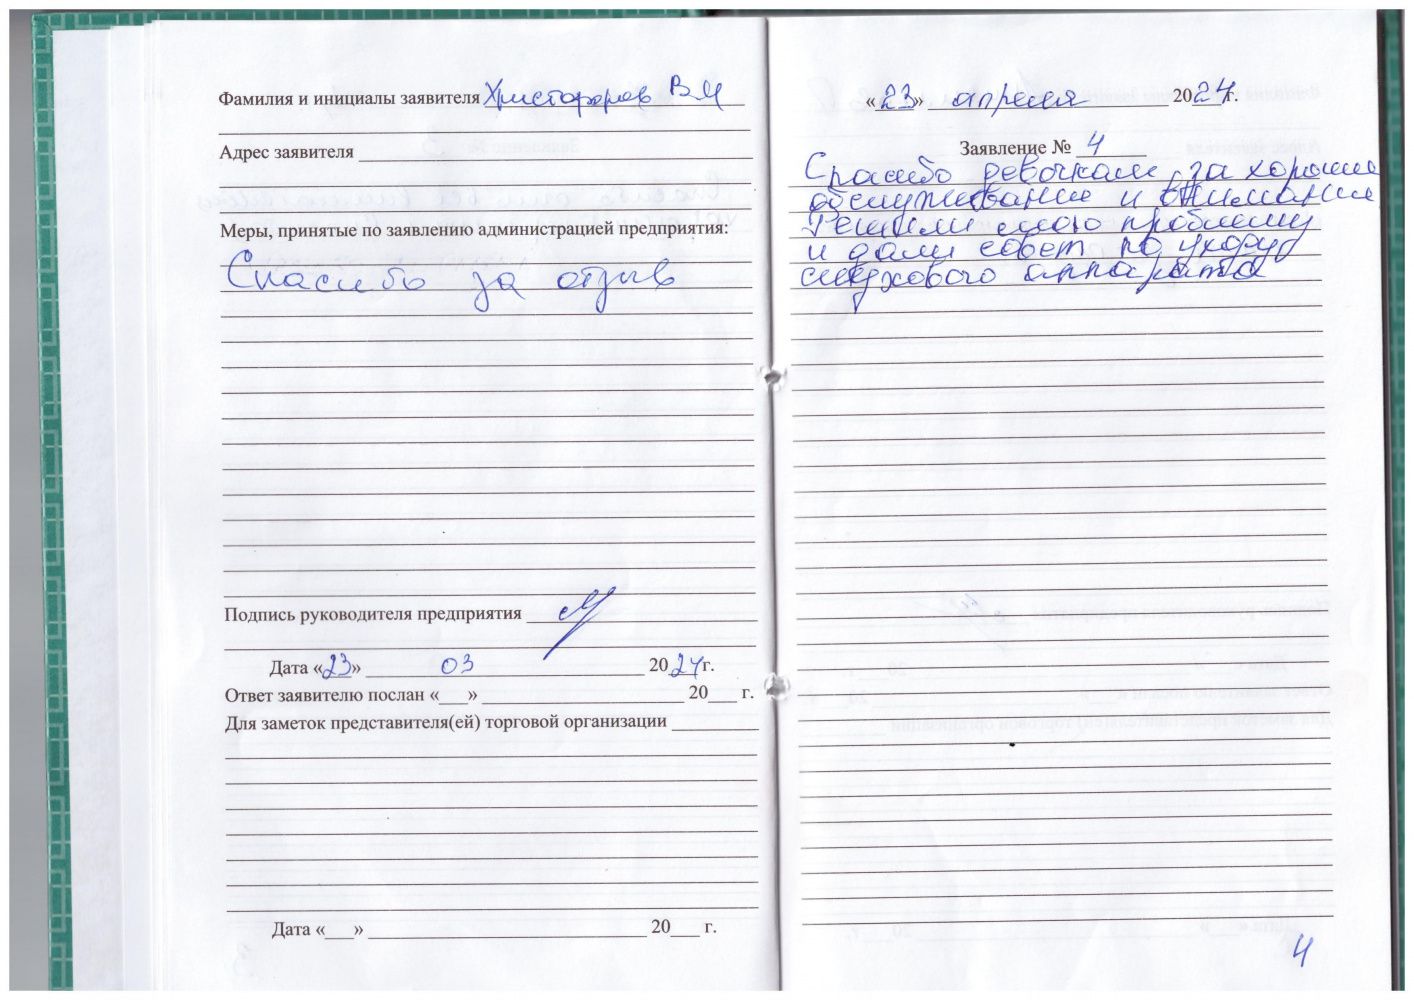 Фамилия и инициалы заявителя Христофоров В И
Адрес заявителя
Меры, принятые по заявлению администрацией предприятия:
Спасибо за отзыв
Подпись руководителя предприятия
Дата «23» 03 2024 г.
Ответ заявителю послан «___» 20___ г.
Для заметок представителя(ей) торговой организации
Дата «___» 20___ г.
«23» апреля 2024 г.
Заявление № 4
Спасибо девочкам за хорошее
обслуживание и внимание
Решили мою проблему
и дали совет по уходу
слухового аппарата
4